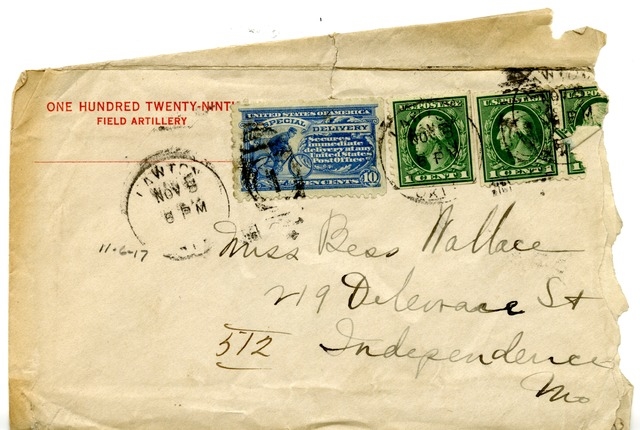 ONE HUNDRED TWENTY-NINTH
FIELD ARTILLERY
UNITED STATES OF AMERICA
SPECIAL DELIVERY
Secures
immediate
delivery at any
United States
Post Office
TEN CENTS 10
1 CENT 1
1 CENT 1
LAWTON
NOV
PM
11-6-17
Miss Bess Wallace
219 Delewrace St
512
Independence
Mo